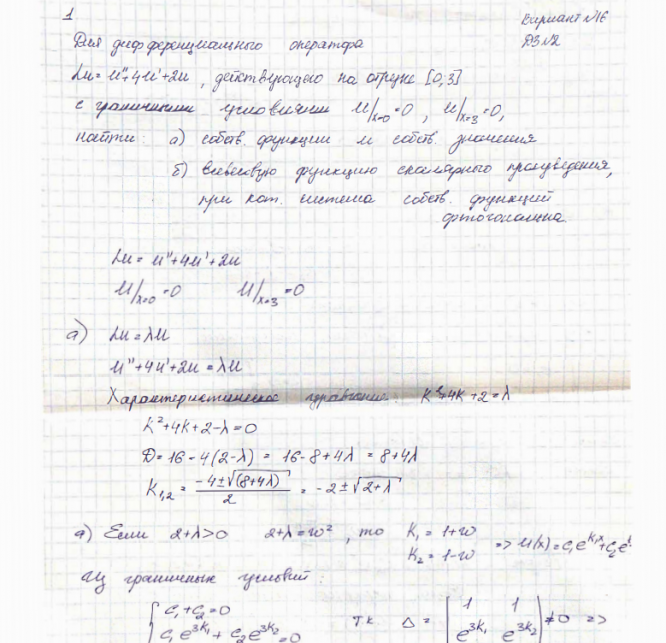 1
Вариант №16
ДЗ №2
Для дифференциального оператора
Lu = u''+4u'+2u, действующего на отрезке [0,3]
с граничными условиями u/x=0 =0, u/x=3 =0,
найти: а) собств. функции и собств. значения
б) весовую функцию скалярного произведения,
при кот. система собств. функций
ортогональна.
Lu = u''+4u'+2u
u/x=0 =0 u/x=3 =0
а) Lu = λu
u''+4u'+2u = λu
Характеристическое уравнение: K²+4K+2=λ
K²+4K+2-λ=0
D=16-4(2-λ) = 16-8+4λ = 8+4λ
K1,2 = (-4±√(8+4λ))/2 = -2±√(2+λ)
а) Если 2+λ>0 2+λ=w², то K1=1+w
K2=1-w => u(x)=c1e^(k1x)+c2e
Из граничных условий:
{ c1+c2=0
c1e^(3k1)+c2e^(3k2)=0
т.к Δ = | 1 1
e^(3k1) e^(3k2) | ≠0 =>